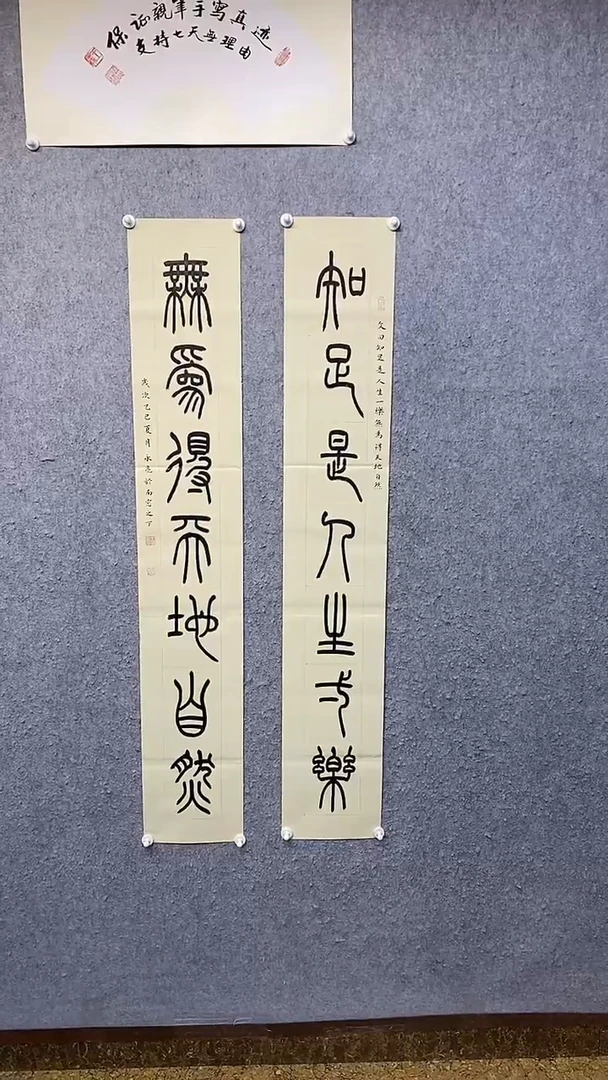 保证親筆手寫真迹
支持七天無理由
知足是人生弌樂
文曰知足是人生一樂無為得天地自然
無爲得天地自然
歲次乙巳夏月永亮於南窗之下